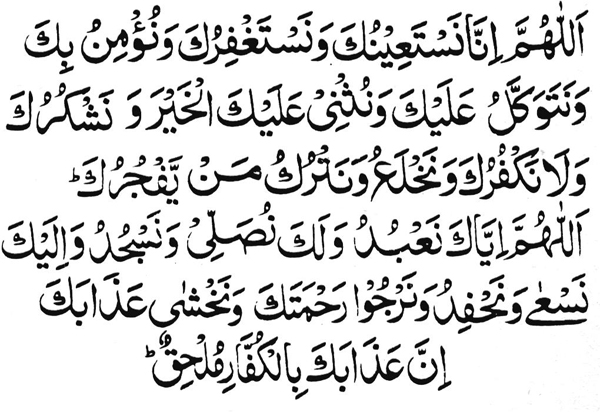 اَللّٰهُمَّ اِنَّا نَسْتَعِيْنُكَ وَنَسْتَغْفِرُكَ وَنُؤْمِنُ بِكَ
وَنَتَوَكَّلُ عَلَيْكَ وَنُثْنِىْ عَلَيْكَ الْخَيْرَ وَ نَشْكُرُكَ
وَلَا نَكْفُرُكَ وَنَخْلَعُ وَنَتْرُكُ مَنْ يَّفْجُرُكَ ؕ
اَللّٰهُمَّ اِيَّاكَ نَعْبُدُ وَلَكَ نُصَلِّىْ وَنَسْجُدُ وَاِلَيْكَ
نَسْعٰى وَنَحْفِدُ وَنَرْجُوْا رَحْمَتَكَ وَنَخْشٰى عَذَابَكَ
اِنَّ عَذَابَكَ بِالْكُفَّارِ مُلْحِقٌ ؕ